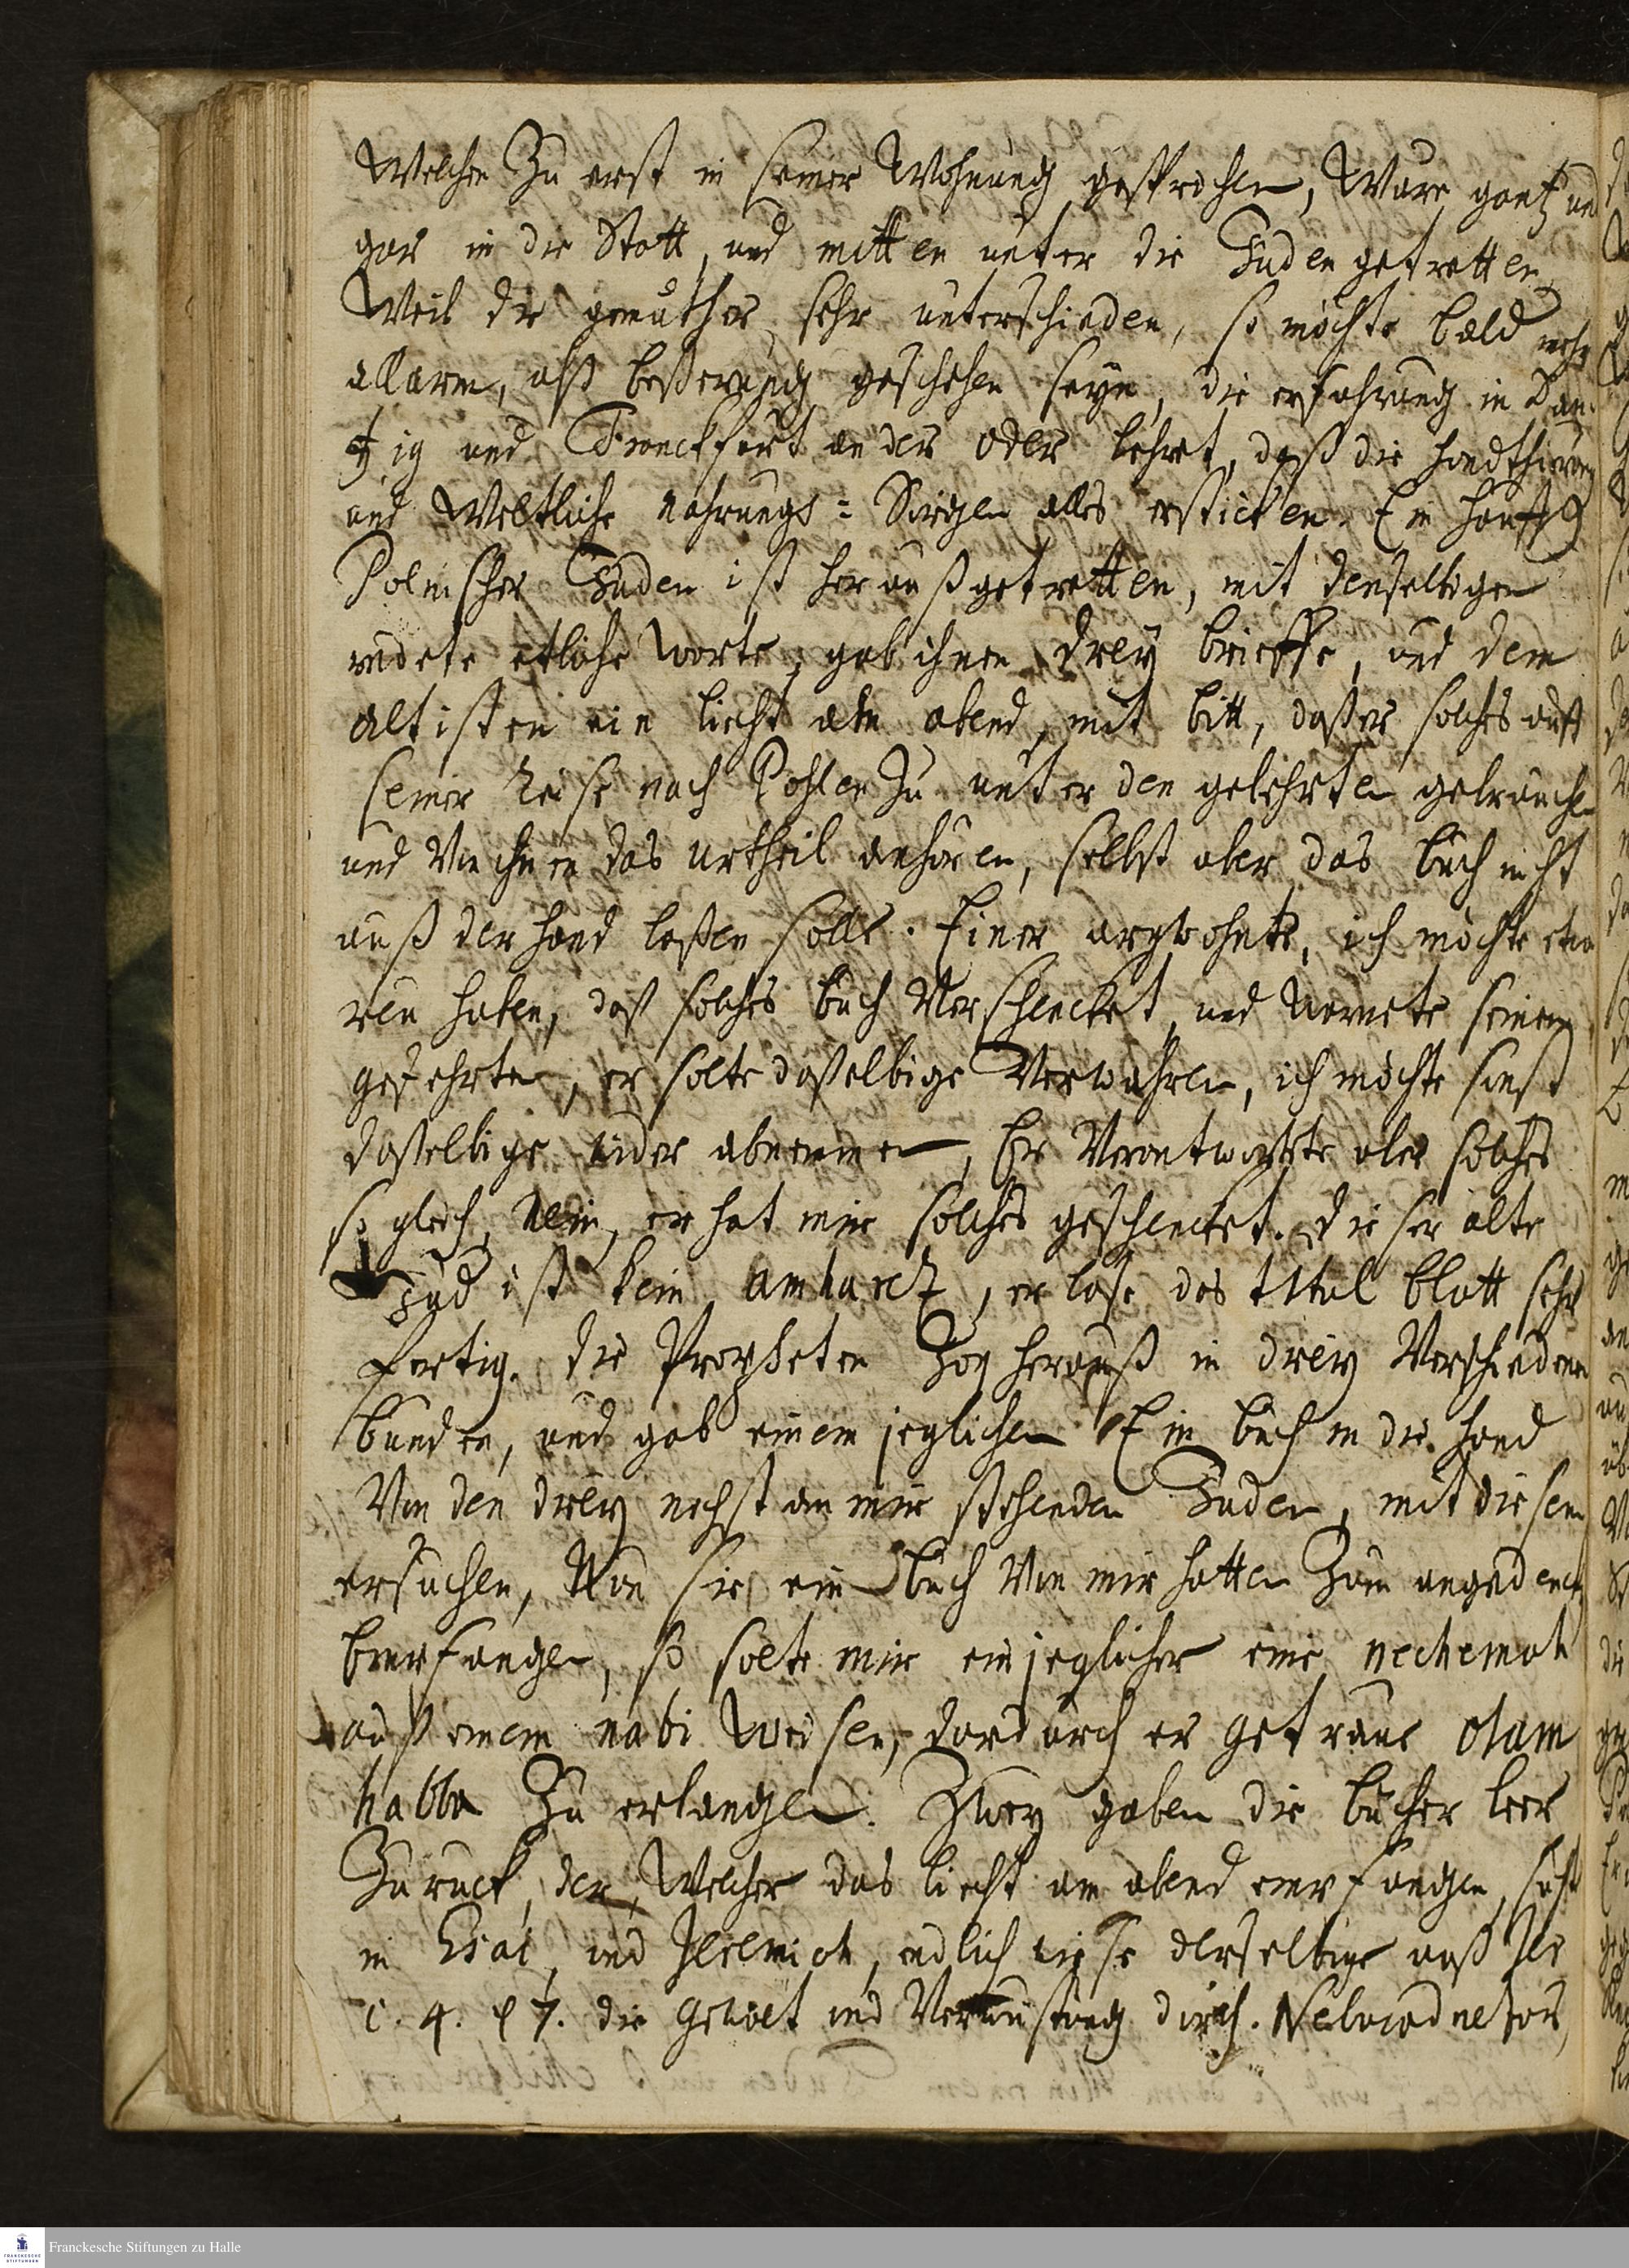 Welchen Zu erst in seiner Wohnung gesprochen, Ware gantz und
gar in die Statt, und mitten unter die Juden getretten,
Weil die gemüther sehr unterschieden, so möchte bald mehr
allarm, alß beßerung geschehen seyn, die erfahrung in Dan-
tzig und Franckfort an der Oder lehret, daß die handthierung
und Weltliche nahrungs-Sorgen alles ersticken. Ein hauffe
Polnischer Juden ist heraußgetretten, mit denselbigen
redete etliche Worte, gab ihnen drey brieffe, und dem
altisten ein liecht am abend, mit bitt, daß er solches auff
seiner Reise nach Pohlen Zu unter den gelehrten gebrauchen
und Von ihnen das urtheil anhören, selbst aber das buch nicht
auß der hand laßen solle. Einer argwohnte, ich möchte etwa
reu haben, daß solches buch Verschencket, und warnete seinen
gefehrten, er solte daßelbige Verwahren, ich möchte sonst
daßelbige wider abnemmen, Er Verantwortete aber solches
so gleich, Nein, er hat mir solches geschencket. dieser alte
Jud ist kein amharez, er lase das titul blatt sehr
fertig. die Propheten Zog herauß in drey Verschiedenen
bunden, und gab einem jeglichen Ein buch in die hand
Von den drey nechst an mir stehenden Juden, mit diesem
ersuchen, Nun sie ein buch Von mir hatten Zum angedencken
empfangen, so solte mir ein jeglicher eine nechemah
auß einem nabi Weisen, dardurch er getraue olam
habba Zu erlangen. Zwey gaben die bücher leer
Zuruck, der, Welcher das liecht am abend empfangen, sucht
in Esai, und Jeremiah, endlich wiese derselbige auß Jer
c. 4. e 7. die Gewalt und Verwüstung durch. Nebucadnezar,
Franckesche Stiftungen zu Halle